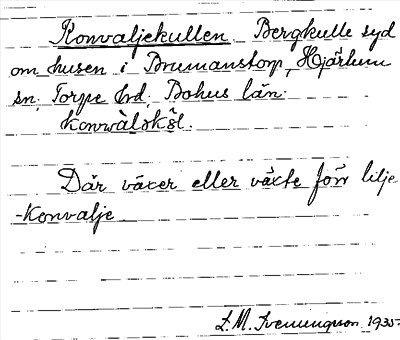 Konvaljekullen Bergkulle syd
om husen i Brumanstorp, Hjärtum
sn. Torpe hd. Bohus län.
Där växer eller växte förr lilje
-Konvalje
L.M. Svenungson 1935.